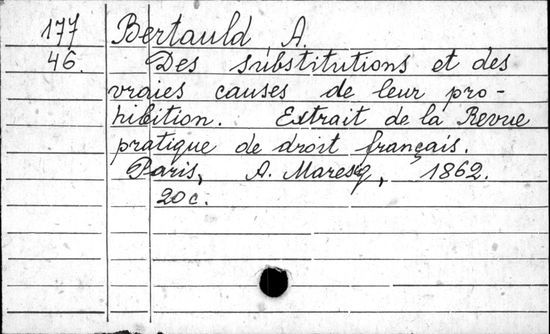 177 Bertauld, A.
46. Des substitutions et des
vraies causes de leur pro-
hibition. Extrait de la Revue
pratique de droit français.
Paris, A. Maresq, 1862.
20 c.